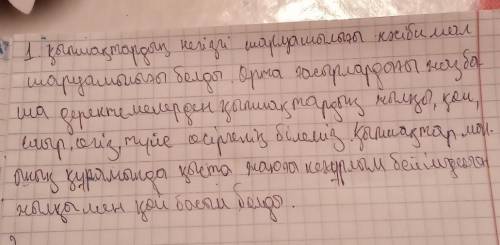 1. қыпшақтардың негізгі шаруашылығы кәсіби мал
шаруашылығы болды. Орта ғасырлардағы жазба-
ша деректемелерден қыпшақтардың жылқы, қой,
сиыр, өгіз, түйе өсіргенін білеміз. Қыпшақтар мал-
ының құрамында қыста жаюға көбірлым бейімделген
жылқы мен қой басым болды.